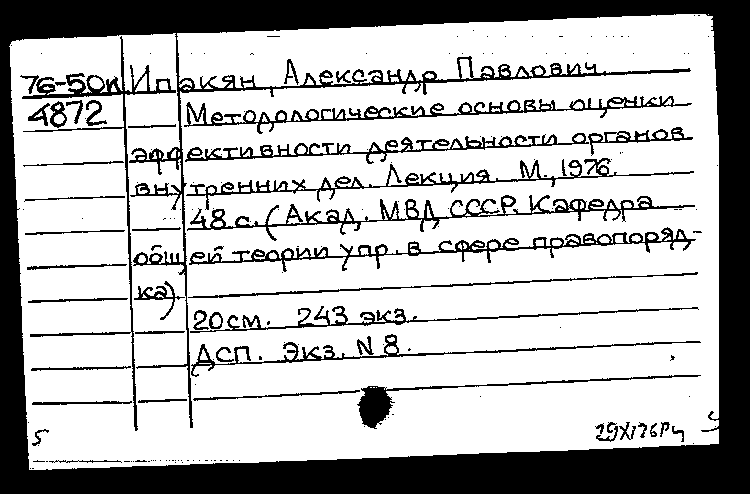 76-50к Ипакян, Александр Павлович.
4872 Методологические основы оценки
эффективности деятельности органов
внутренних дел. Лекция. М., 1976.
48 с. (Акад. МВД СССР. Кафедра
общей теории упр. в сфере правопоряд-
ка).
20см. 243 экз.
ДСП. Экз. N 8.
5